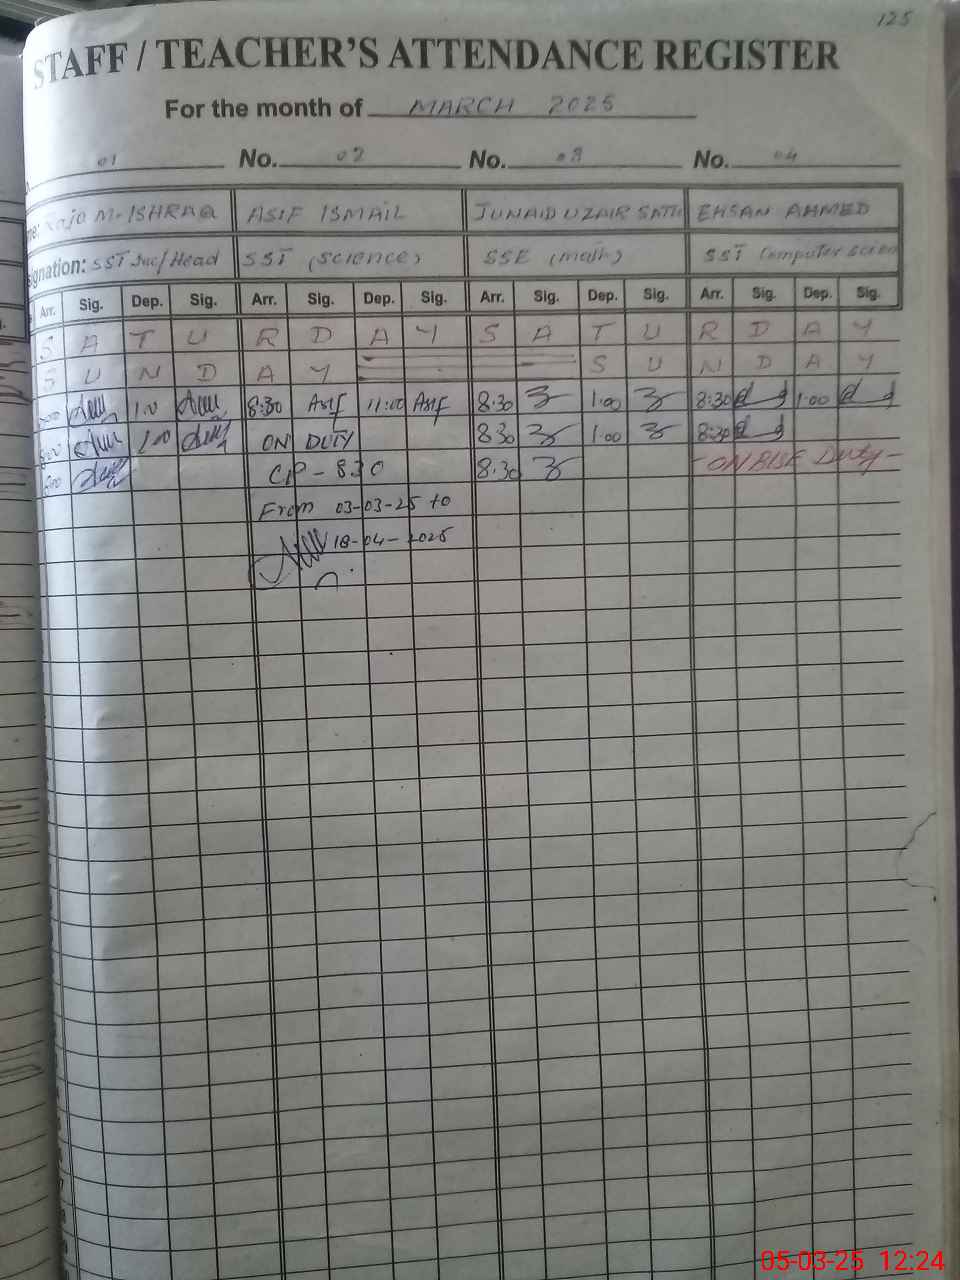 125
STAFF / TEACHER'S ATTENDANCE REGISTER
For the month of MARCH 2025
01 No. 02 No. 03 No. 04
me: Raja M. ISHRAQ ASIF ISMAIL JUNAID UZAIR SATTI EHSAN AHMED
signation: SST Inc/Head SST (science) SSE (math) SST Computer Scien
Arr. Sig. Dep. Sig. Arr. Sig. Dep. Sig. Arr. Sig. Dep. Sig. Arr. Sig. Dep. Sig.
S A T U R D A Y S A T U R D A Y
S U N D A Y S U N D A Y
8:00 1.00 8:30 Asif 11:00 Asif 8.30 1.00 8:30 1.00
8:00 1.00 ON DUTY 8.30 1.00 8:30
8:00 CP - 830 8.30 -ON BISE Duty-
From 03-03-25 to
18-04-2025
05-03-25 12:24